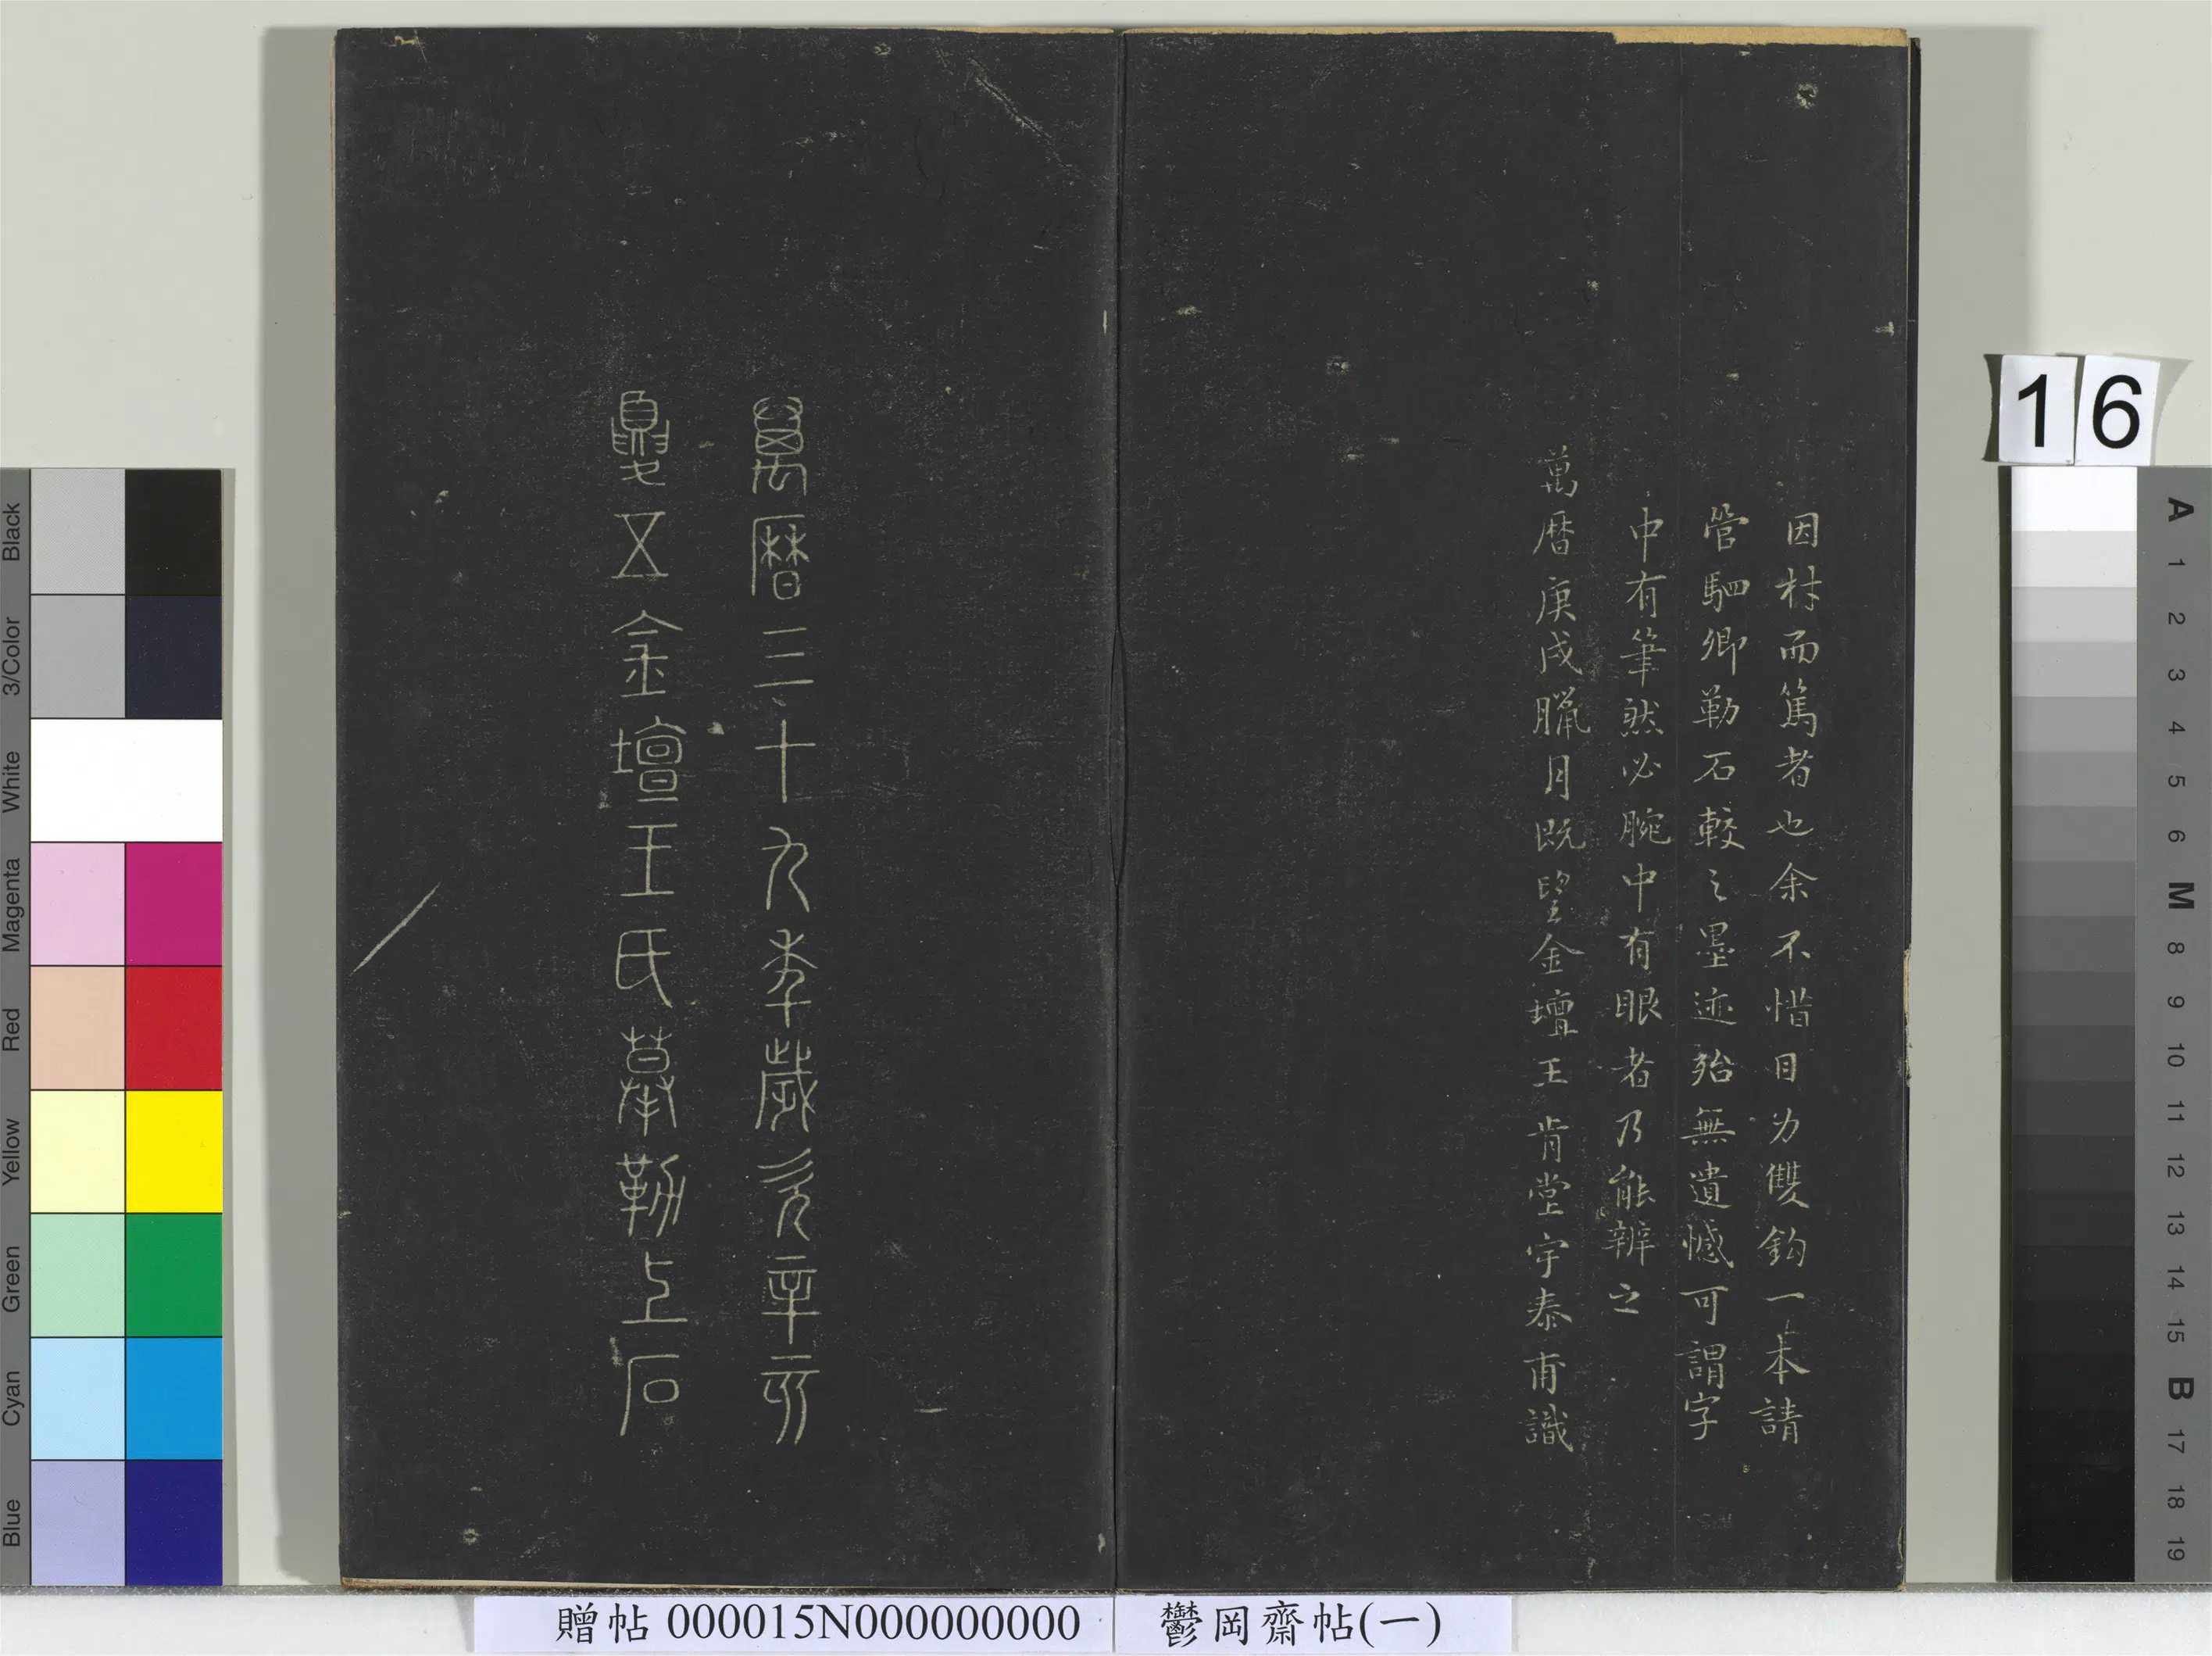 因材而篤者也余不惜目力雙鈎一本請
管駟卿勒石較之墨迹殆無遺憾可謂字
中有筆然必腕中有眼者乃能辨之
萬曆庚戌臘月既望金壇王肯堂宇泰甫識
萬曆三十九季歲次辛亥
夏五金壇王氏摹勒上石
16
贈帖 000015N000000000
鬱岡齋帖(一)
Black
3/Color
White
Magenta
Red
Yellow
Green
Cyan
Blue
A
1
2
3
4
5
6
M
8
9
10
11
12
13
14
15
B
17
18
19